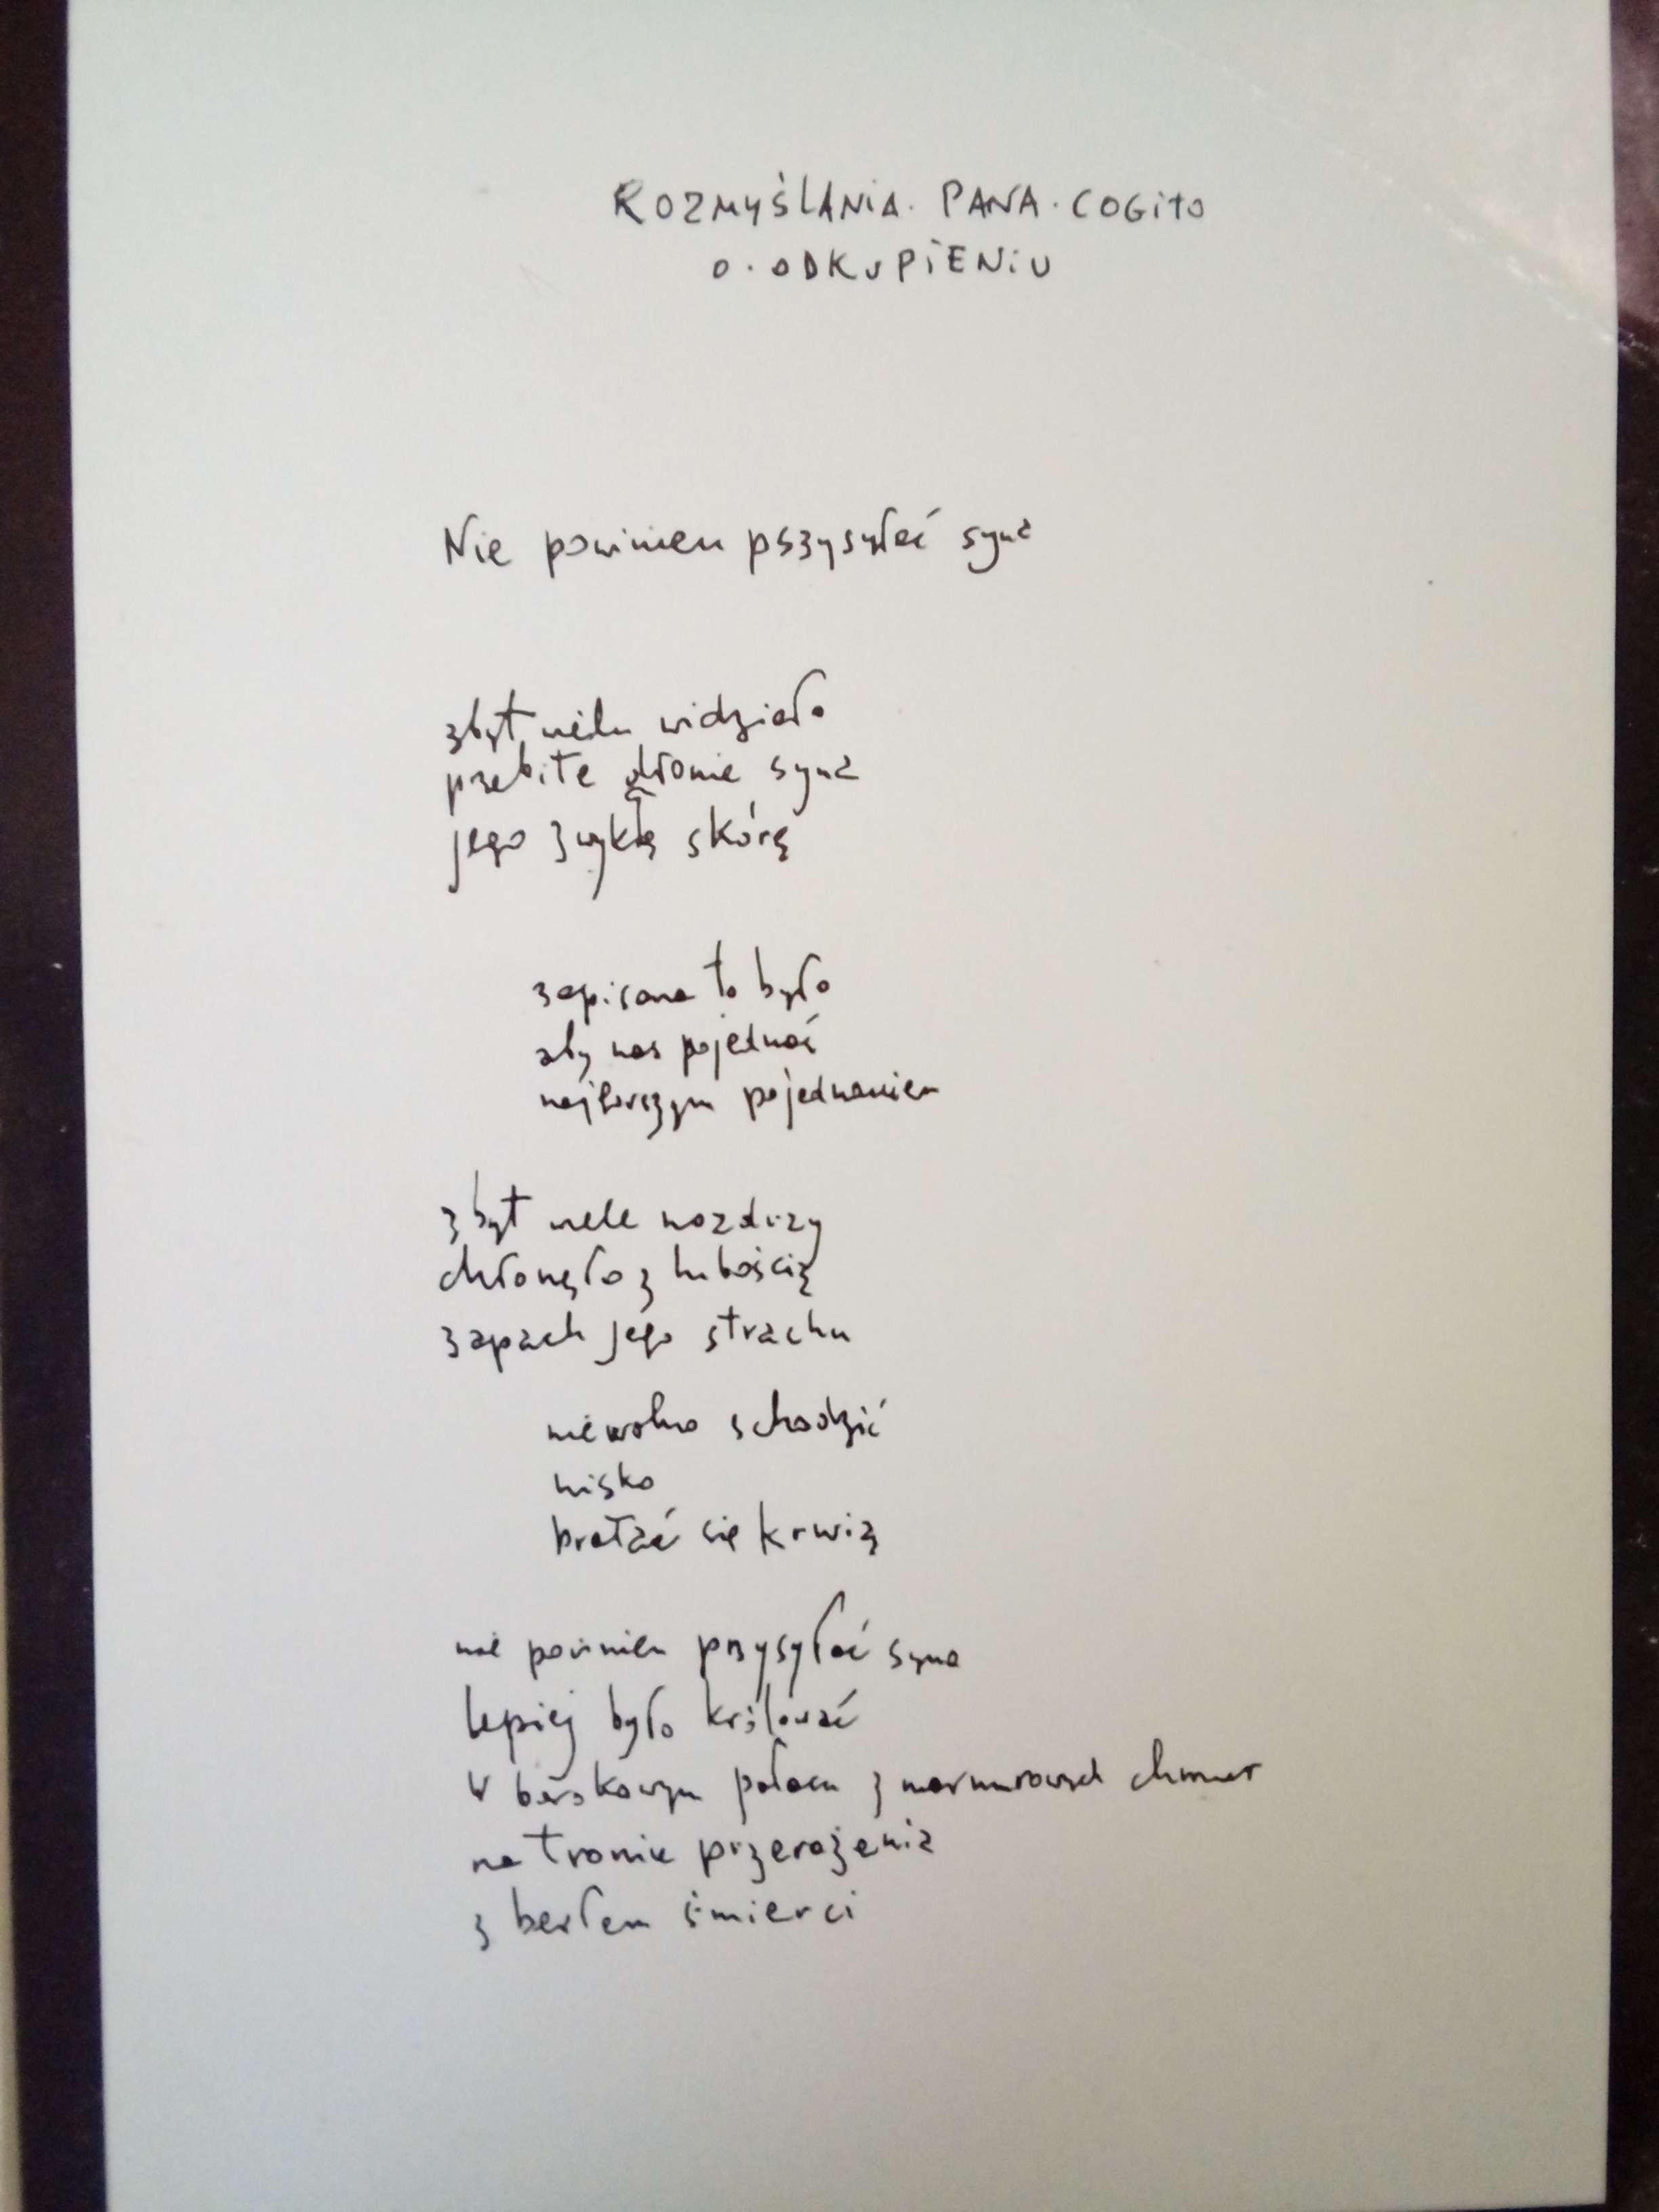 ROZMYŚLANIA. PANA. COGITO
O. ODKUPIENIU
Nie powinien przysyłać syna
zbyt wielu widziało
przebite dłonie syna
jego zwykłą skórę
zapisane to było
aby nas pojednać
najgorszym pojednaniem
zbyt wiele nozdrzy
chłonęło z lubością
zapach jego strachu
nie wolno schodzić
nisko
bratać się krwią
nie powinien przysyłać syna
lepiej było królować
w barokowym pałacu z marmurowych chmur
na tronie przerażenia
z berłem śmierci